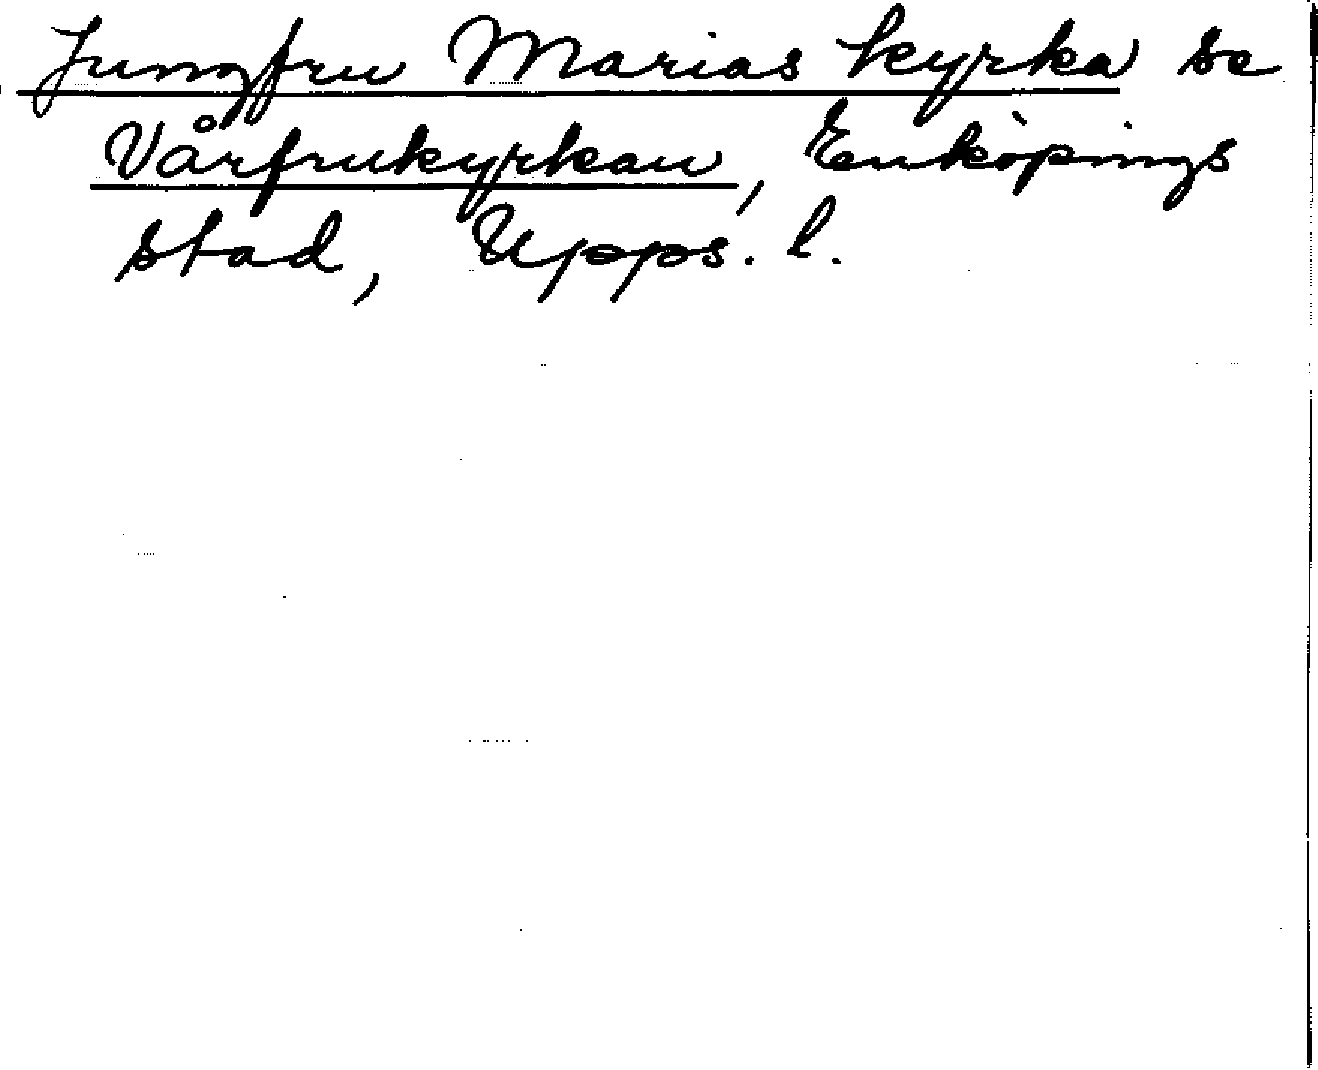 Jungfru Marias kyrka se
Vårfrukyrkan, Enköpings
stad, Upps. l.